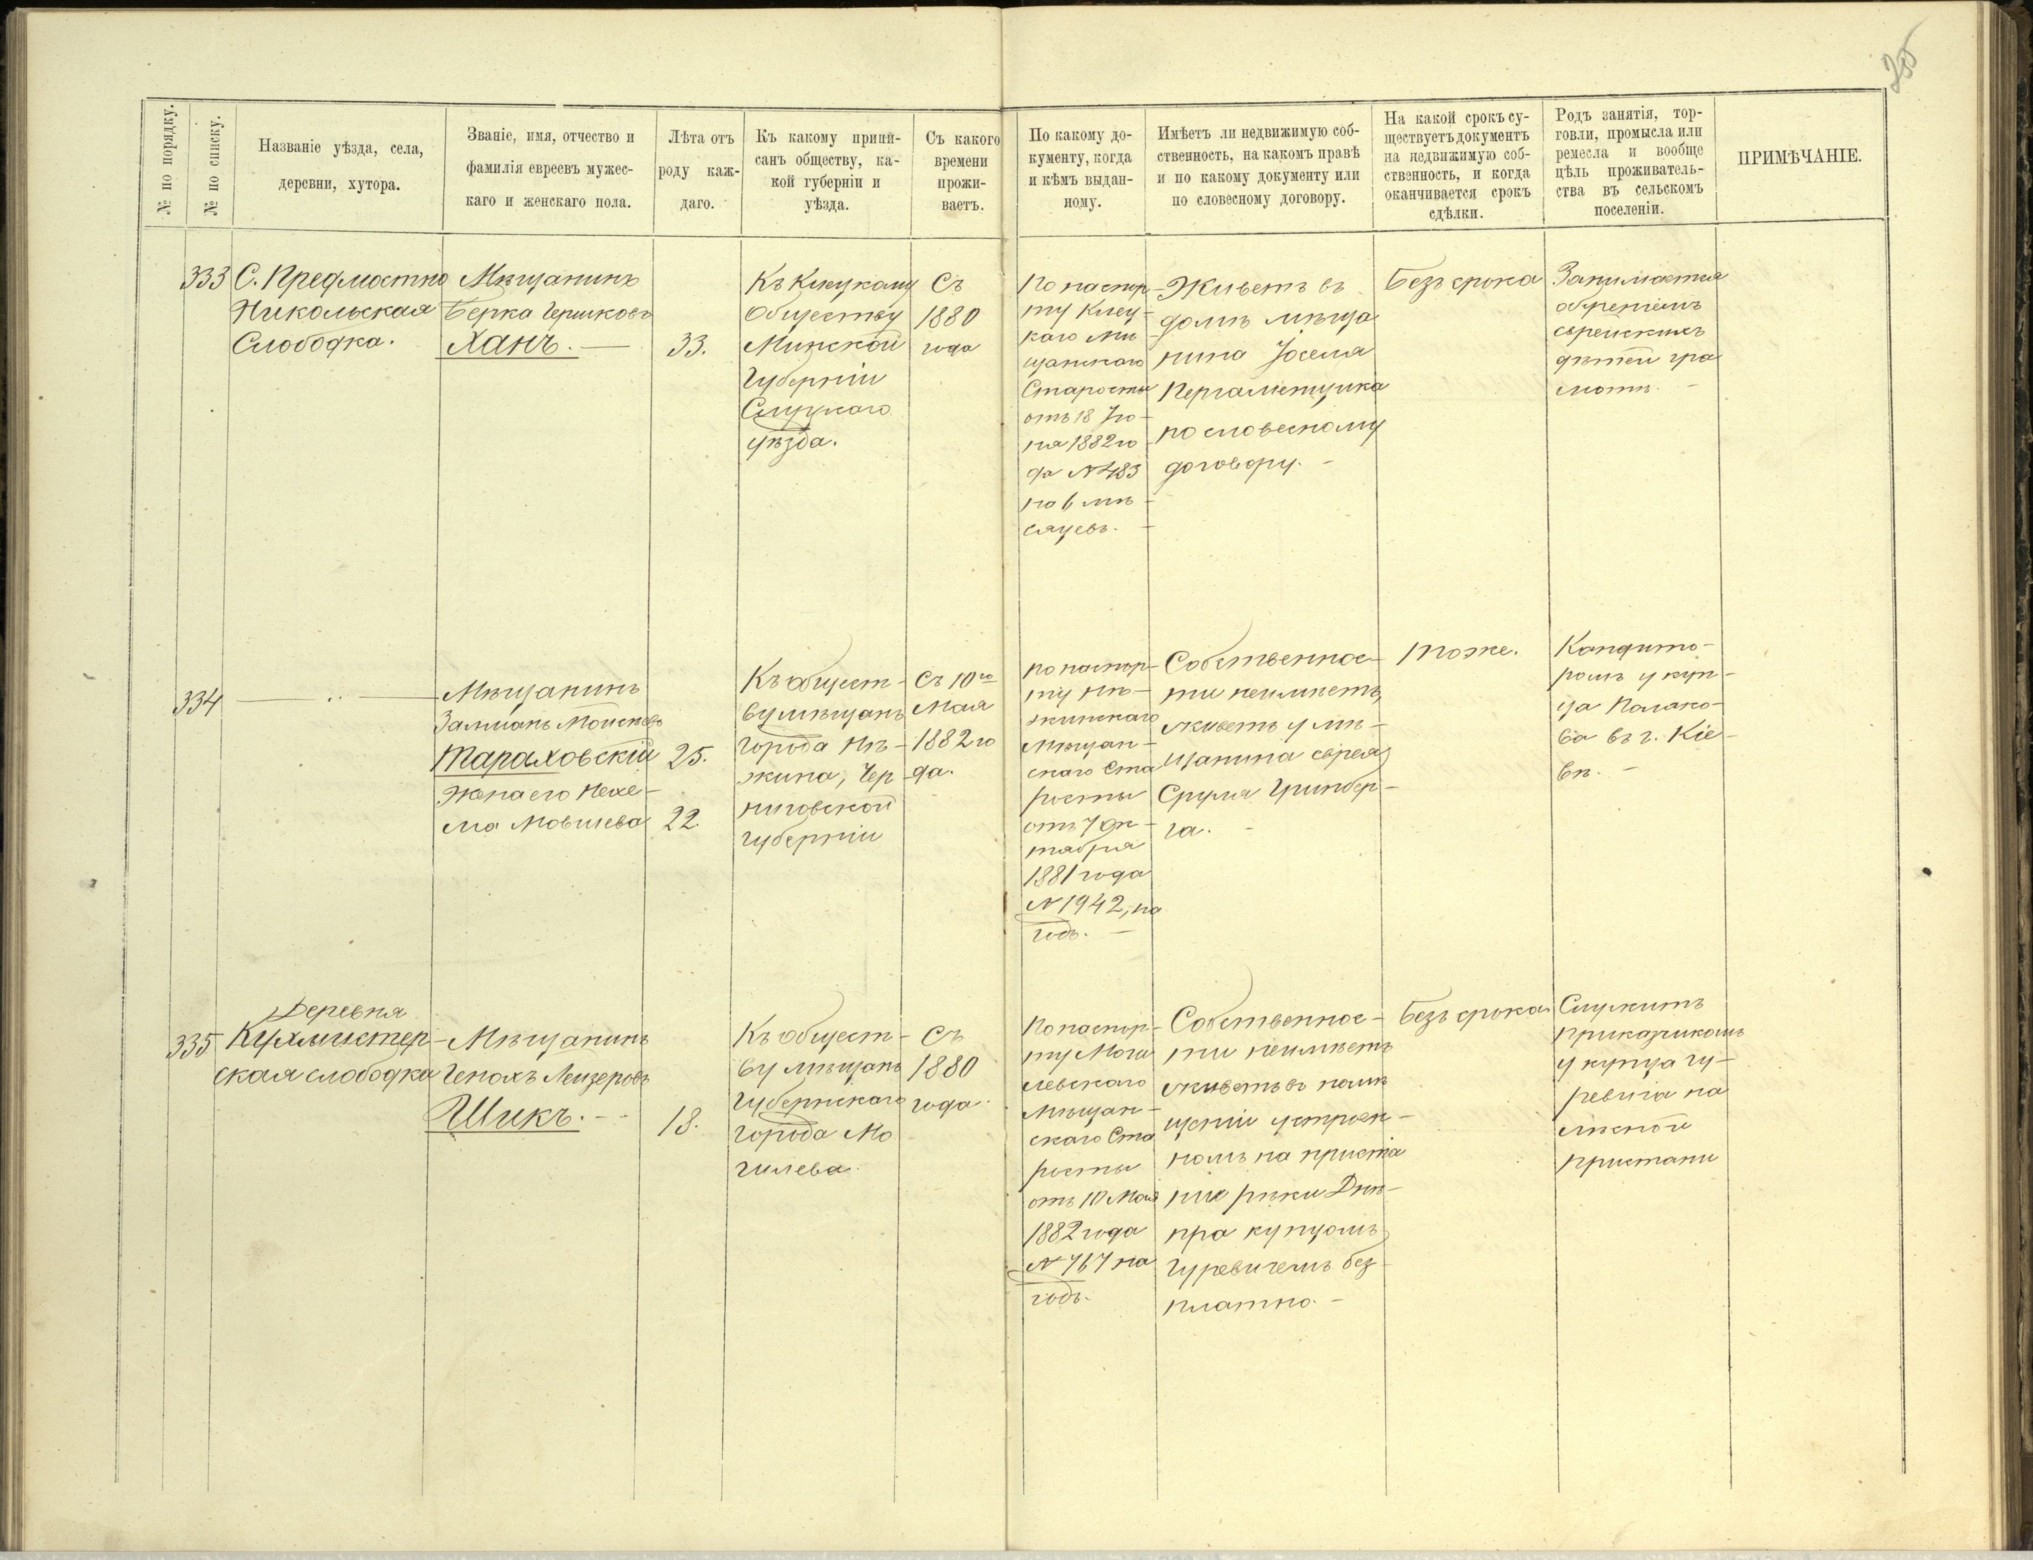 255
№ по порядку.
№ по списку.
Названіе уѣзда, села,
деревни, хутора.
Званіе, имя, отчество и
фамилія евреевъ мужес-
каго и женскаго пола.
Лѣта отъ
роду каж-
даго.
Къ какому припи-
санъ обществу, ка-
кой губерніи и
уѣзда.
Съ какого
времени
прожи-
ваетъ.
По какому до-
кументу, когда
и кѣмъ выдан-
ному.
Имѣетъ ли недвижимую соб-
ственность, на какомъ правѣ
и по какому документу или
по словесному договору.
На какой срокъ су-
ществуетъ документъ
на недвижимую соб-
ственность, и когда
оканчивается срокъ
сдѣлки.
Родъ занятія, тор-
говли, промысла или
ремесла и вообще
цѣль проживатель-
ства въ сельскомъ
поселеніи.
ПРИМѢЧАНІЕ.
333
С. Предмостно
Никольская
Слободка.
Мѣщанинъ
Берка Гершковъ
Ханъ. —
33.
Къ Клецкому
Обществу
Минской
Губерніи
Слуцкаго
уѣзда.
Съ
1880
года
По паспор-
ту Клец-
каго Мѣ-
щанскаго
Старосты
отъ 18 Ію-
ня 1882 го-
да № 483
на 6 мѣ-
сяцевъ. -
Живетъ въ
домѣ мѣща
нина Іоселя
Пергаменщика
по словесному
договору. -
Безъ срока
Занимается
обученіемъ
еврейскихъ
дѣтей гра
мотѣ. -
334
— ·· —
Мѣщанинъ
Залманъ Мойсеевъ
Тараховскій
Жена его Нехе-
ма Мовшева
25.
22.
Къ общест-
ву мѣщанъ
города Нѣ-
жина, Чер-
ниговской
губерніи
Съ 10го
Мая
1882 го
да.
По паспор-
ту Нѣ-
жинскаго
Мѣщан-
скаго Ста
росты
отъ 7 Ок-
тября
1881 года
№ 1942, на
годъ. —
Собственнос-
ти неимѣетъ,
живетъ у мѣ-
щанина еврея
Срума Гринбер-
га. -
Тоже.
Кондито-
ромъ у куп-
ца Полако-
ва въ г. Кіе-
вѣ. -
335
Деревня
Кухмистер-
ская слободка
Мѣщанинъ
Генохъ Лейзеровъ
Шикъ. --
18.
Къ общест-
ву мѣщанъ
Губернскаго
города Мо
гилева.
Съ
1880
года.
По паспор-
ту Моги
левскаго
Мѣщан-
скаго Ста
росты
отъ 10 Мая
1882 года
№ 767 на
годъ.
Собственнос-
ти неимѣетъ
живетъ въ помѣ
щеніи устроен-
номъ на приста
ни рѣки Днѣ-
пра купцомъ
Гуревичемъ без-
платно. -
Безъ срока
Служитъ
прикащикомъ
у купца Гу-
ревича на
лѣсной
пристани